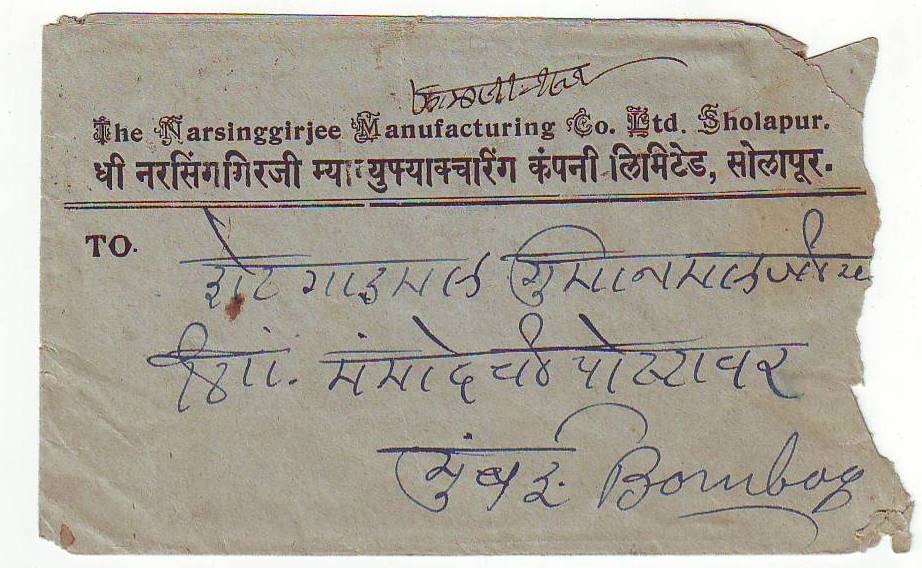 The Narsinggirjee Manufacturing Co. Ltd. Sholapur.
धी नरसिंगगिरजी म्यान्युफ्याक्चरिंग कंपनी लिमिटेड, सोलापूर.
TO.
शेट गाडमल गुमानमलजी
ठि. मंमादेवी पोष्टावर
मुंबई. Bombay